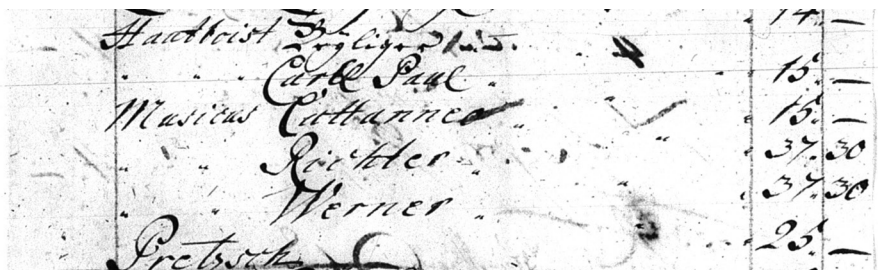 14. —
Hautboist
" " Carll Paul " " 15. —
Musicus Cattanneo " " 15. —
" " Richter " " 37. 30
" " Werner " " 37. 30
Pretzsch " 25. —